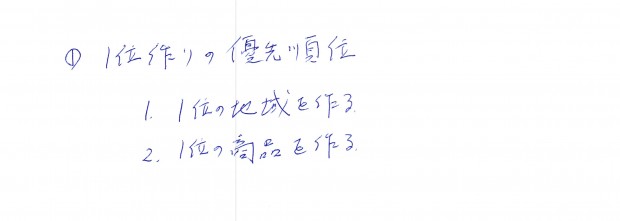 ① 1位作りの優先順位
1. 1位の地域を作る
2. 1位の商品を作る